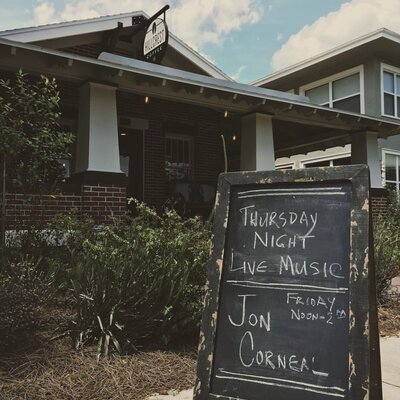 THURSDAY
NIGHT
LIVE MUSIC
FRIDAY
NOON-2PM
JON
CORNEAL